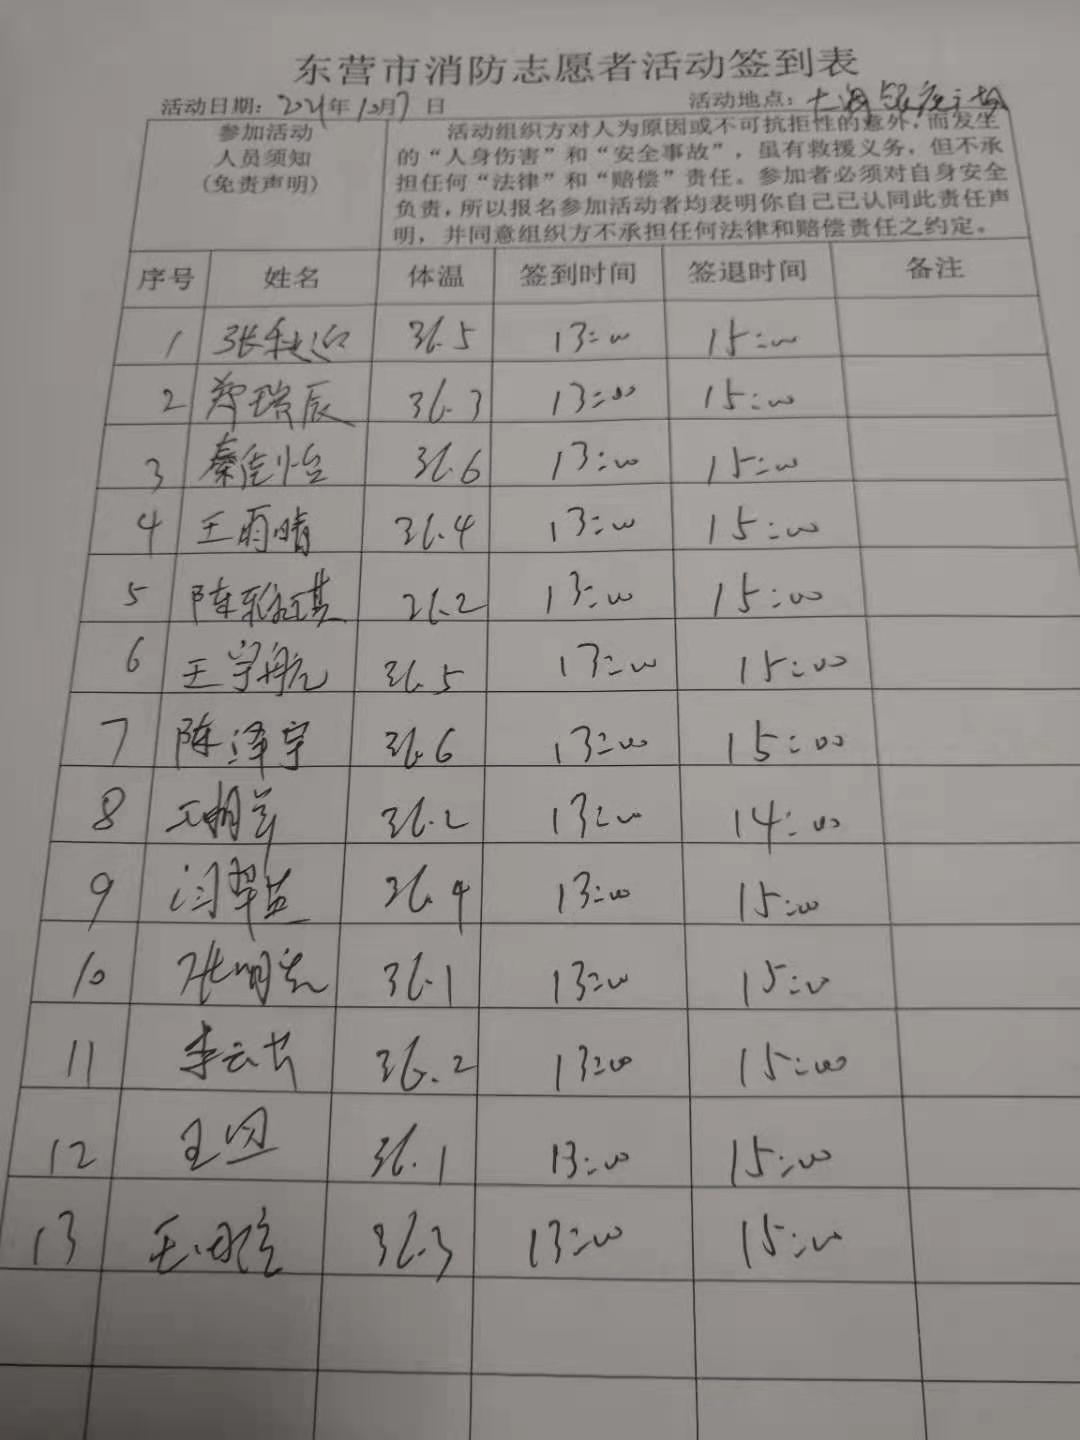 东营市消防志愿者活动签到表
活动日期：2021年10月7日 活动地点：
参加活动
人员须知
(免责声明)
活动组织方对人为原因或不可抗拒性的意外，而发生
的“人身伤害”和“安全事故”，虽有救援义务，但不承
担任何“法律”和“赔偿”责任。参加者必须对自身安全
负责，所以报名参加活动者均表明你自己已认同此责任声
明，并同意组织方不承担任何法律和赔偿责任之约定。
序号 姓名 体温 签到时间 签退时间 备注
1 张 36.5 13:00 15:00
2 郑瑞辰 36.3 13:00 15:00
3 秦佳怡 36.6 13:00 15:00
4 王雨晴 36.4 13:00 15:00
5 陈雅琪 36.2 13:00 15:00
6 王宇航 36.5 13:00 15:00
7 陈泽宇 36.6 13:00 15:00
8 王明 36.2 13:00 14:00
9 闫翠 36.4 13:00 15:00
10 张明 36.1 13:00 15:00
11 李云 36.2 13:00 15:00
12 王 36.1 13:00 15:00
13 王 36.3 13:00 15:00